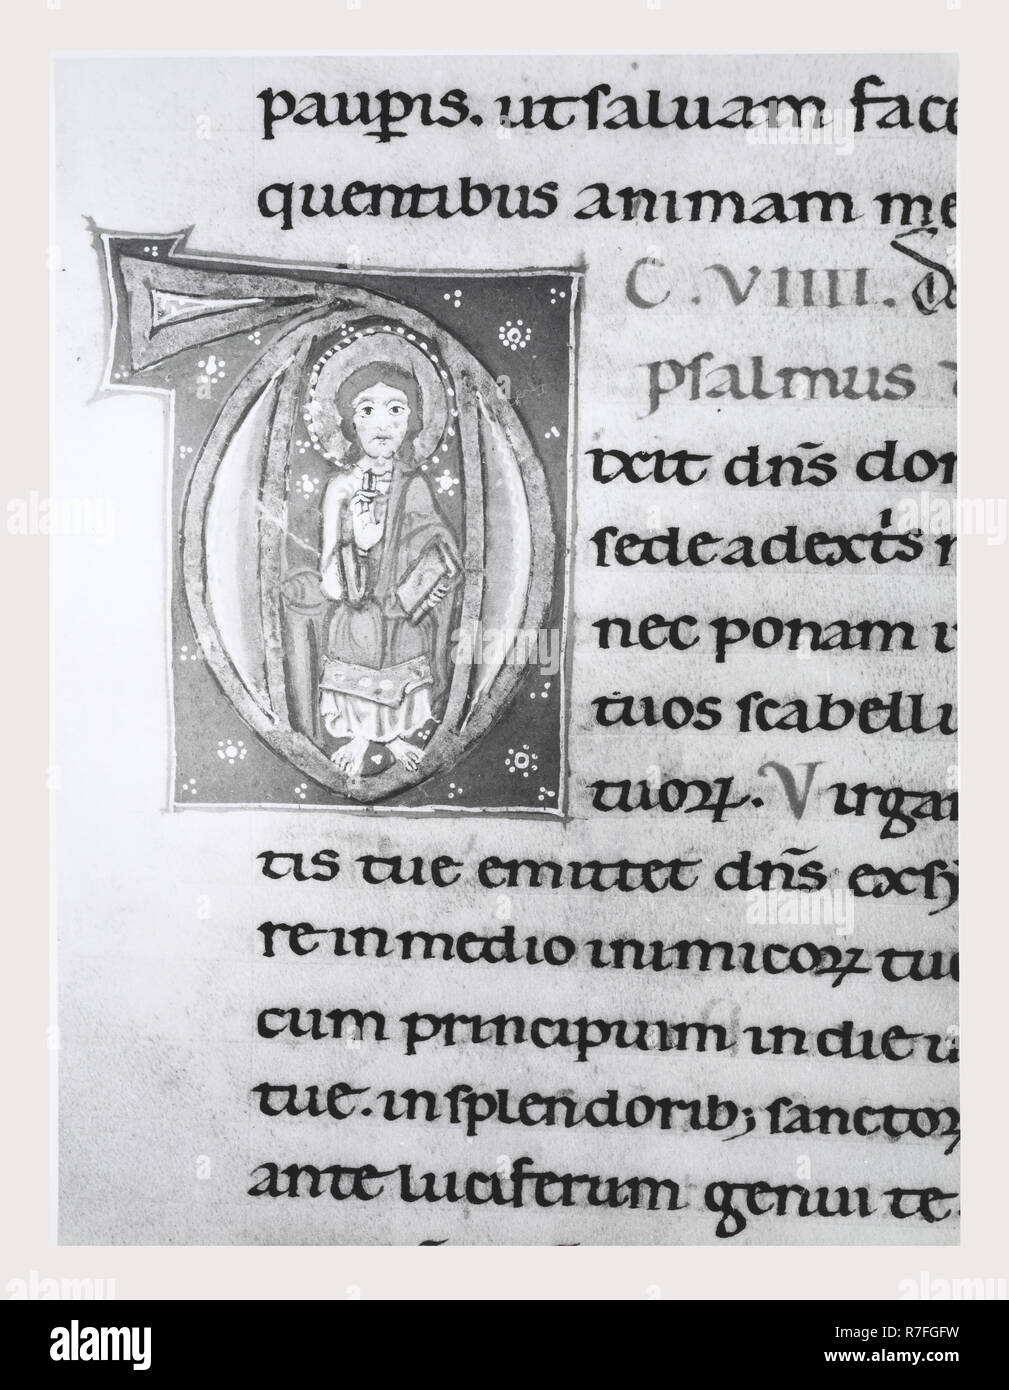 paup̲is. ut saluam face
quentibus animam me
C.VIIII.
psalmus
ixit dn̄s dom
sede a dextꝭs m
nec ponam in
tuos scabellu
tuoꝝ. Virgam
tis tue emittet dn̄s ex
re in medio inimicoꝝ tuo
cum principium in die u
tue. in splendorib; sanctoꝝ
ante luciferum genui te.
alamy
Image ID: R7FGFW
www.alamy.com